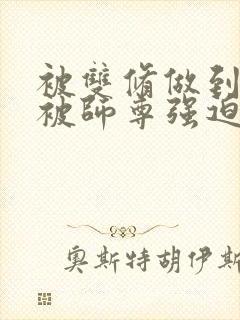 被雙脩做到
被師尊强迫
奥斯特胡伊斯